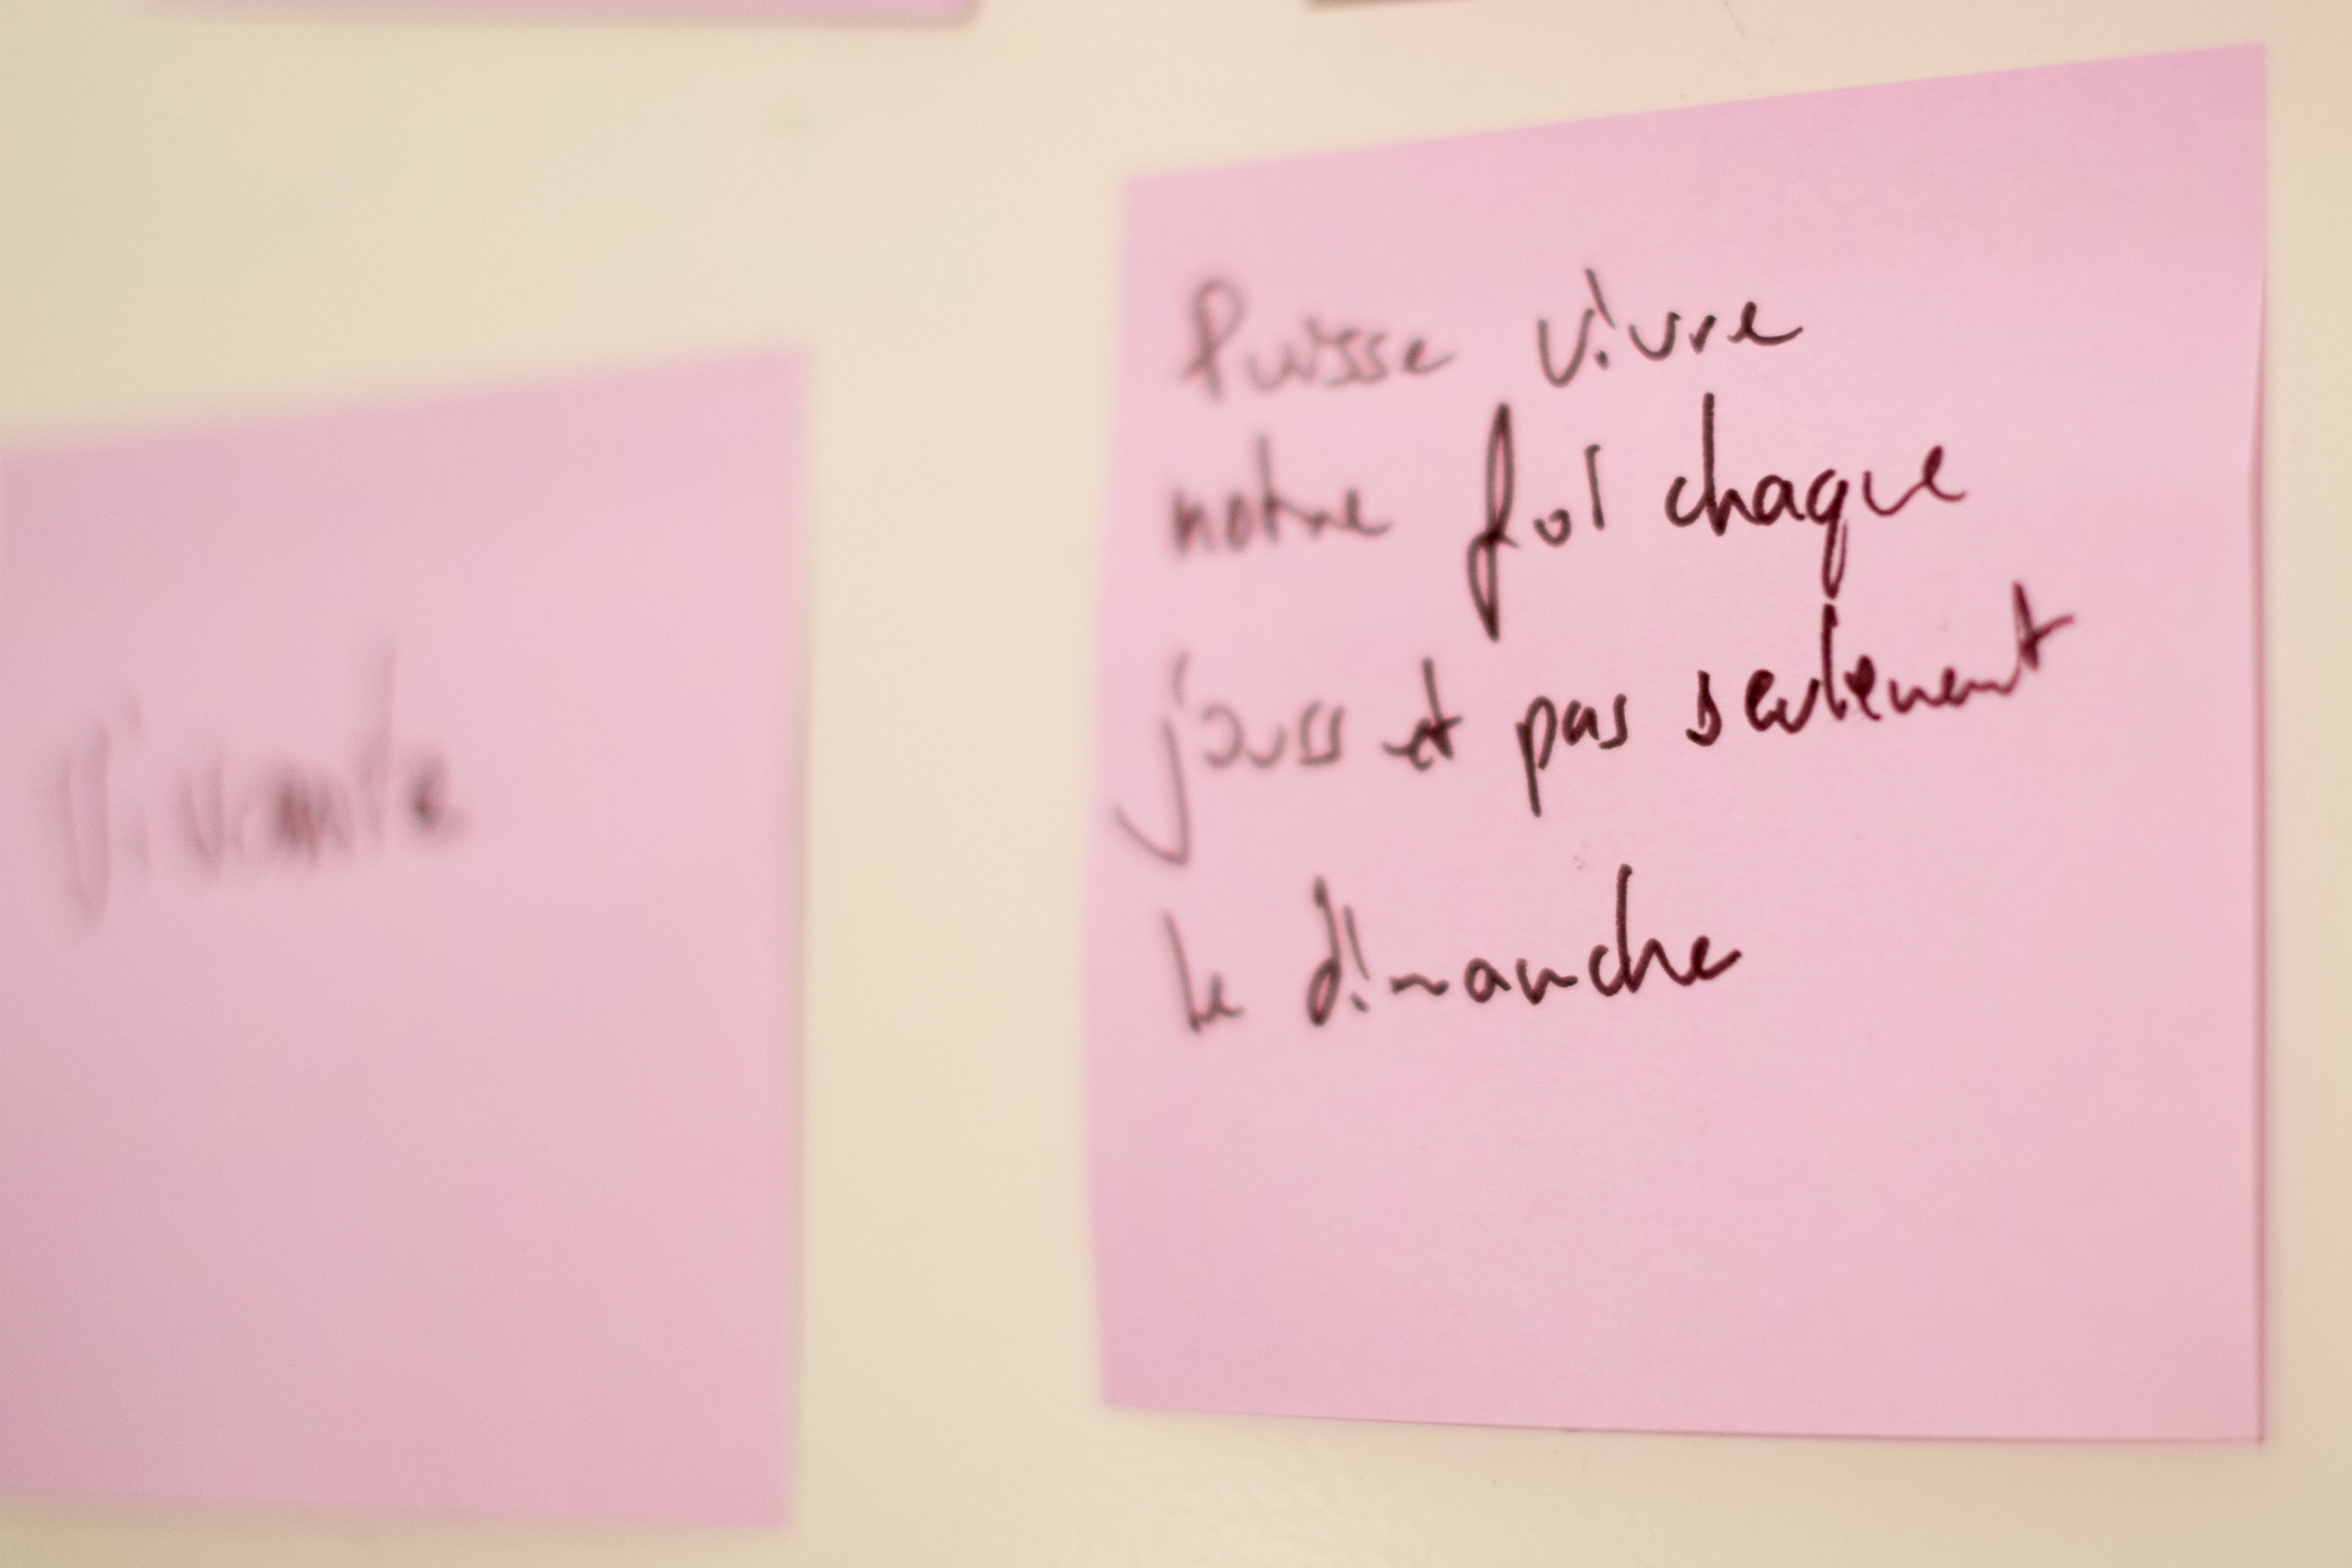 Vivante
Puisse vivre
notre foi chaque
jours et pas seulement
le dimanche